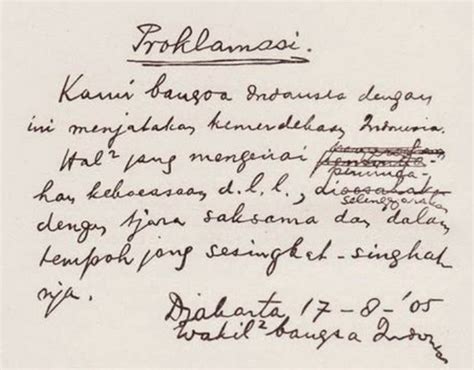 Proklamasi.
Kami bangsa Indonesia dengan
ini menjatakan kemerdekaan Indonesia.
Hal² jang mengenai
peminda-
han kekoeasaan d.l.l.,
diselenggarakan
dengan tjara saksama dan dalam
tempoh jang sesingkat-singkat
nja.
Djakarta 17 - 8 - '05
Wakil² bangsa Indonesia